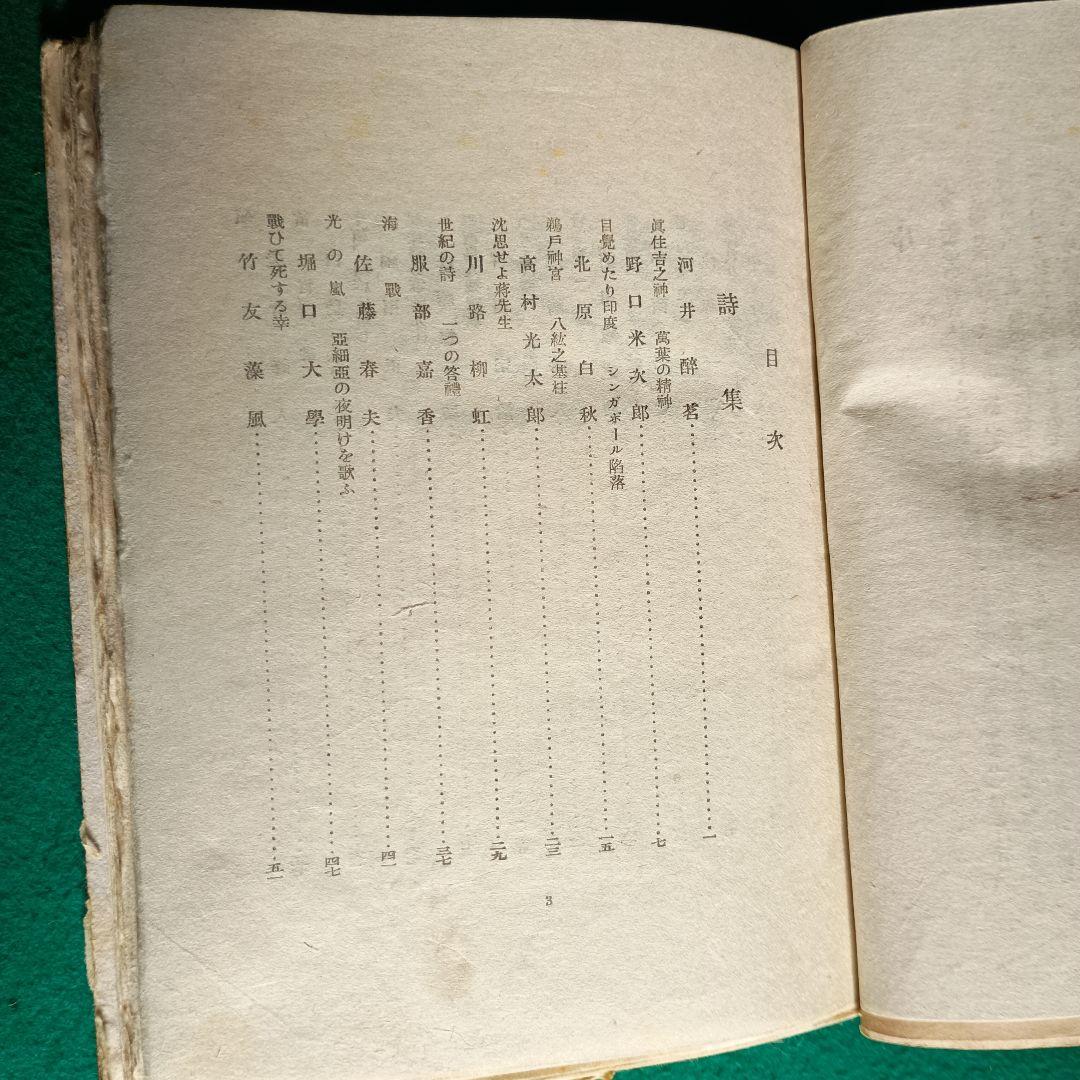 目次
詩集
河井醉茗……一
眞住吉之神 萬葉の精神
野口米次郎……七
目覺めたり印度 シンガポール陷落
北原白秋……一五
鵜戶神宮 八紘之基柱
高村光太郎……二三
沈思せよ蔣先生
川路柳虹……二九
世紀の詩 一つの答禮
服部嘉香……三七
海戰
佐藤春夫……四一
光の嵐 亞細亞の夜明けを歌ふ
堀口大學……四七
戰ひて死する幸
竹友藻風……五一
3